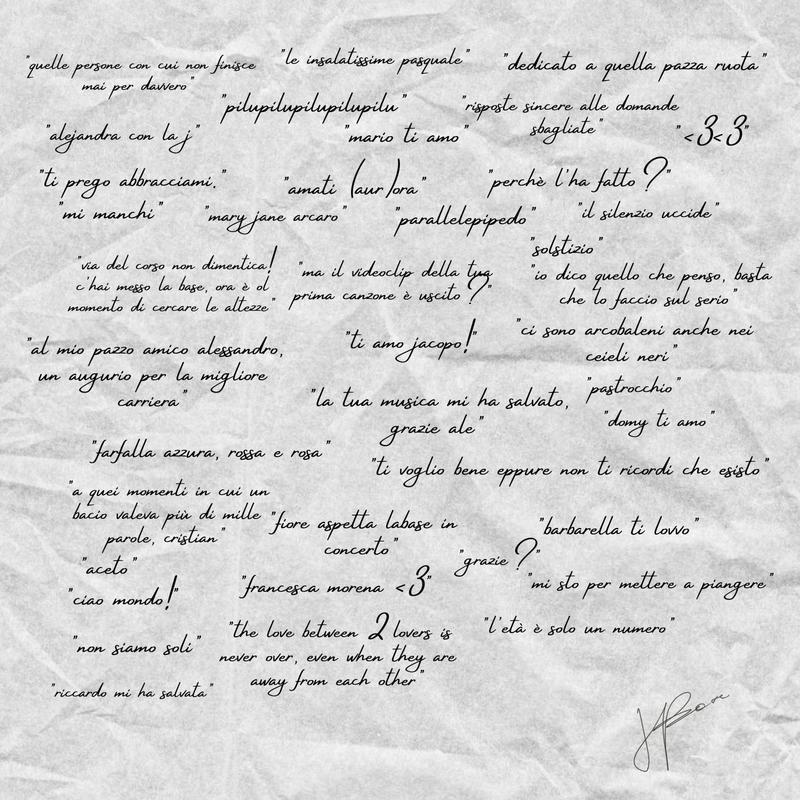 "quelle persone con cui non finisce
mai per davvero"
"le insalatissime pasquale"
"dedicato a quella pazza ruota"
"pilupilupilupilupilu"
"risposte sincere alle domande
sbagliate"
"alejandra con la j"
"mario ti amo"
"<3<3"
"ti prego abbracciami."
"amati (aur)ora"
"perchè l'ha fatto?"
"mi manchi"
"mary jane arcaro"
"parallelepipedo"
"il silenzio uccide"
"solstizio"
"via del corso non dimentica!
c'hai messo la base, ora è ol
momento di cercare le altezze"
"ma il videoclip della tua
prima canzone è uscito?"
"io dico quello che penso, basta
che lo faccio sul serio"
"al mio pazzo amico alessandro,
un augurio per la migliore
carriera"
"ti amo jacopo!"
"ci sono arcobaleni anche nei
ceieli neri"
"la tua musica mi ha salvato,
grazie ale"
"pastrocchio"
"domy ti amo"
"farfalla azzura, rossa e rosa"
"ti voglio bene eppure non ti ricordi che esisto"
"a quei momenti in cui un
bacio valeva più di mille
parole, cristian"
"fiore aspetta labase in
concerto"
"barbarella ti lovvo"
"aceto"
"grazie?"
"ciao mondo!"
"francesca morena <3"
"mi sto per mettere a piangere"
"non siamo soli"
"the love between 2 lovers is
never over, even when they are
away from each other"
"l'età è solo un numero"
"riccardo mi ha salvata"